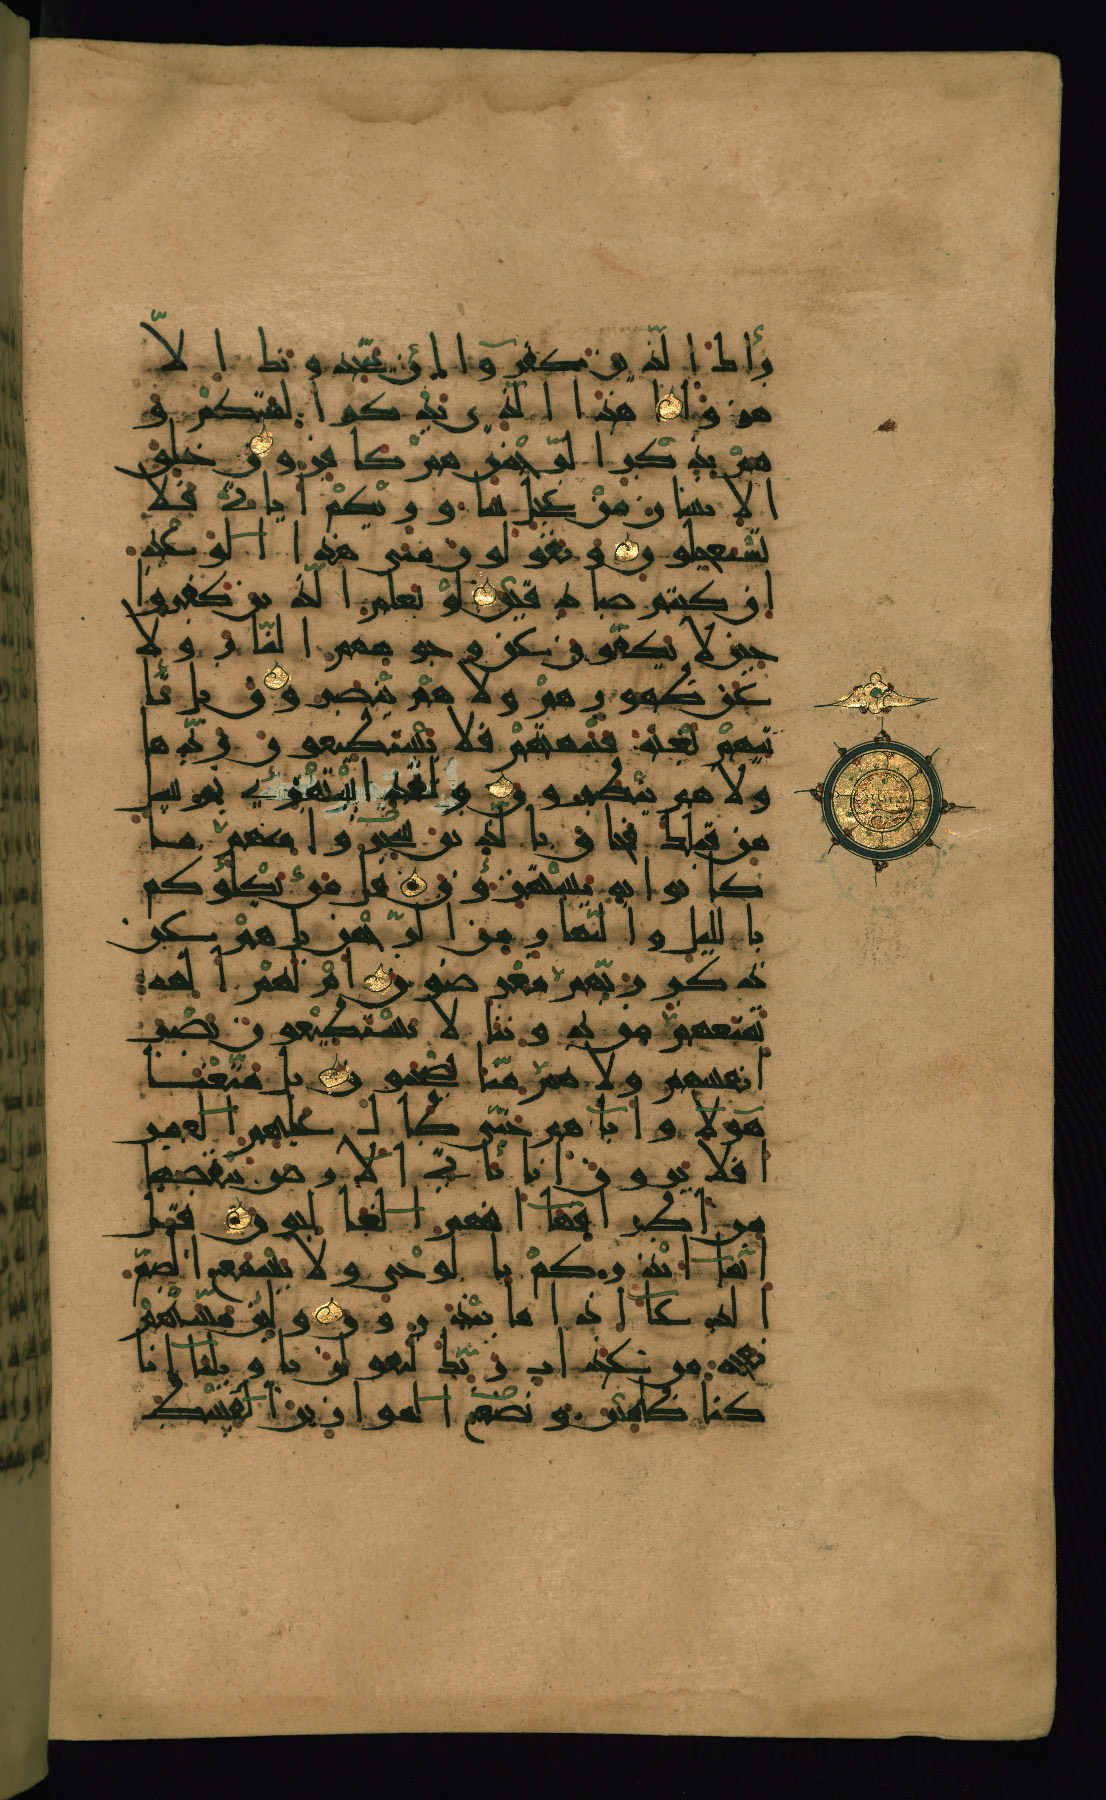 رأك الذين كفروا إن يتخذونك الا
هزوا اهذا الذي يذكر الهتكم و
هم بذكر الرحمن هم كافرون خلق
الانسان من عجل ساوريكم اياتي فلا
تستعجلون ويقولون متى هذا الوعد
ان كنتم صادقين لو يعلم الذين كفروا
حين لا يكفون عن وجوههم النار ولا
عن ظهورهم ولا هم ينصرون بل تأ
تيهم بغتة فتبهتهم فلا يستطيعون ردها
ولا هم ينظرون ولقد استهزئ برسل
من قبلك فحاق بالذين سخروا منهم ما
كانوا به يستهزؤن قل من يكلؤكم
بالليل والنهار من الرحمن بل هم عن
ذكر ربهم معرضون ام لهم الهة
تمنعهم من دوننا لا يستطيعون نصر
انفسهم ولا هم منا يصحبون بل متعنا
هؤلا واباهم حتى طال عليهم العمر
افلا يرون انا نأتي الارض ننقصها
من اطرافها افهم الغالبون قل
انما انذركم بالوحي ولا يسمع الصم
الدعا اذا ما ينذرون ولئن مستهم
نفحة من عذاب ربك ليقولن يا ويلنا انا
كنا ظالمين ونضع الموازين القسط